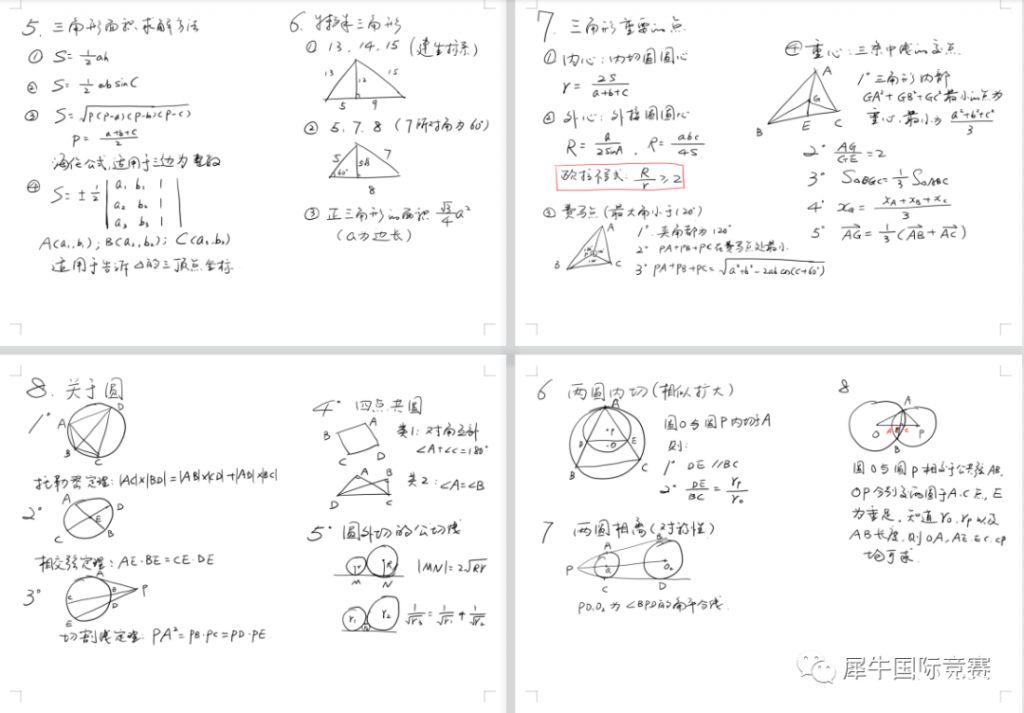 5. 三角形面积求解方法
① S=½ah
② S=½absinC
③ S=√P(P-a)(P-b)(P-c)
P=(a+b+c)/2
海伦公式,适用于三边为整数
④ S=±½ |a₁ b₁ 1|
|a₂ b₂ 1|
|a₃ b₃ 1|
A(a₁,b₁); B(a₂,b₂); C(a₃,b₃)
适用于告诉△的三顶点坐标
6. 特殊三角形
① 13.14.15 (建坐标系)
13 12 15
5 9
② 5.7.8 (7所对角为60°)
5 7
60°
8
③ 正三角形的面积 √3/4 a²
(a为边长)
7. 三角形重要的点
① 内心:内切圆圆心
r=2S/(a+b+c)
② 外心:外接圆圆心
R=a/2sinA, R=abc/4S
欧拉不等式: R/r≥2
③ 费马点(最大角小于120°)
A
B C
1° 夹角都为120°
2° PA+PB+PC在费马点处最小
3° PA+PB+PC=√a²+b²-2abcos(C+60°)
④ 重心:三条中线的交点
A
G
B E C
1° 三角形内部
GA²+GB²+GC²最小的点为
重心,最小为 (a²+b²+c²)/3
2° AG/GE=2
3° S△BGC=⅓S△ABC
4° xG=(xA+xB+xC)/3
5° AG=⅓(AB+AC)
8. 关于圆
1°
A D
B C
托勒密定理: |AC|×|BD|=|AB|×|CD|+|AD|×|BC|
2°
A D
E
C B
相交弦定理: AE·BE=CE·DE
3°
A
P
C D
E
切割线定理: PA²=PB·PC=PD·PE
4° 四点共圆
A
B
C D
类1:对角互补
∠A+∠C=180°
A B
D C
类2:∠A=∠B
5° 圆外切的公切线
r R
M N
|MN|=2√Rr
r₁ r₂
1/√r₃=1/√r₁+1/√r₂
6 两圆内切(相似扩大)
A
P
D O E
B C
圆O与圆P内切于A
则:
1° DE∥BC
2° DE/BC=rP/rO
7 两圆相离(对称性)
A B
P O₂
C D
PO₁O₂为∠BPD的角平分线
8
A
O P
B
圆O与圆P相交于公共弦AB,
OP分别交两圆于A.C E, E
为垂足,知道rO, rP以及
AB长度,则OA, AE. EC. CP
均可求.
犀牛国际竞赛